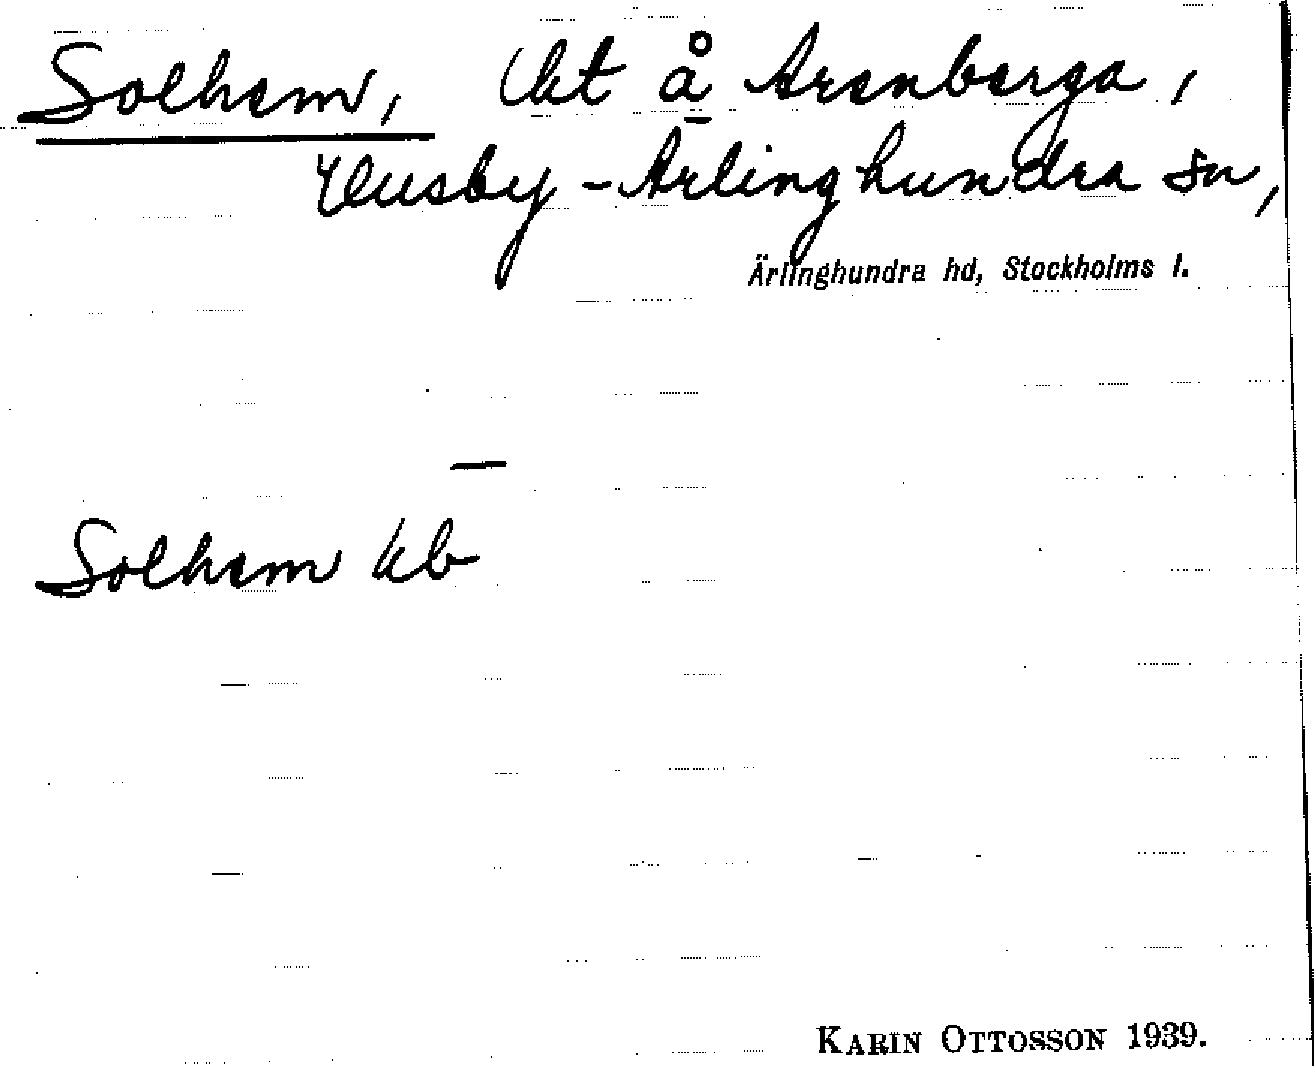 Solhem, lht å Arenberga,
Husby-Ärlinghundra sn,
Ärlinghundra hd, Stockholms l.
—
Solhem kb
KARIN OTTOSSON 1939.